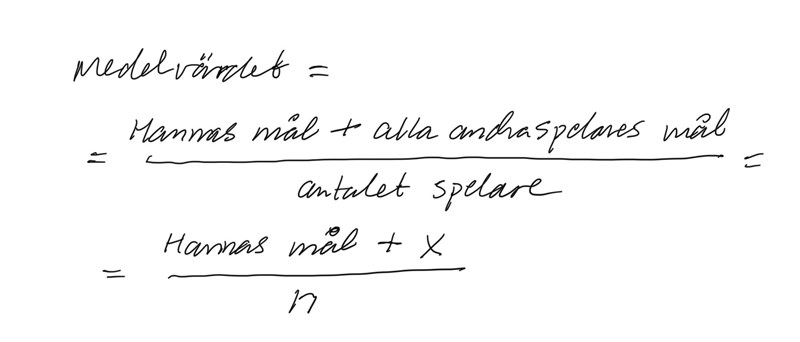 medelvärdet =
= Hannas mål + alla andraspelares mål =
antalet spelare
= Hannas mål + x
n